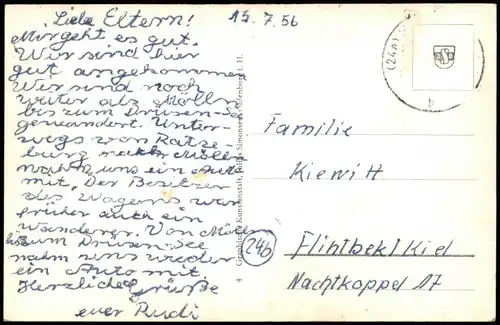 Liebe Eltern!
Mir geht es gut.
Wir sind hier
gut angekommen
Wir sind noch
weiter als Mölln
bis zum Drüsen-See
gewandert. Unter-
wegs von Ratze-
burg nach Mölln
nahm uns ein Auto
mit. Der Besitzer
des Wagens war
früher auch ein
Wanderer. Von Mölln
bis zum Drüsen-See
nahm uns wieder
ein Auto mit.
Herzliche Grüße
euer Rudi
15.7.56
(24a)
b
4 Graphische Kunstanstalt, Oldenburg i. H.
Familie
Kiewitt
24b
Flintbek/Kiel
Nachtkoppel 17